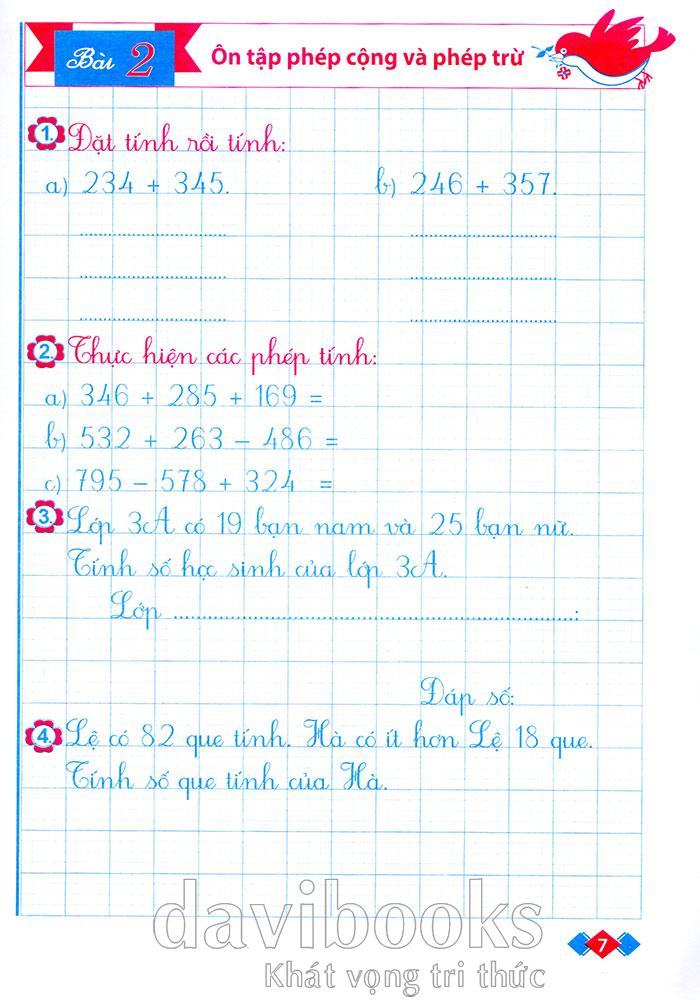 Bài 2 Ôn tập phép cộng và phép trừ
1. Đặt tính rồi tính:
a) 234 + 345. b) 246 + 357.
.............................. ..............................
.............................. ..............................
.............................. ..............................
2. Thực hiện các phép tính:
a) 346 + 285 + 169 =
b) 532 + 263 – 486 =
c) 795 – 578 + 324 =
3. Lớp 3A có 19 bạn nam và 25 bạn nữ.
Tính số học sinh của lớp 3A.
Lớp ..............................................................................:
Đáp số:
4. Lệ có 82 que tính. Hà có ít hơn Lệ 18 que.
Tính số que tính của Hà.
davibooks
Khát vọng tri thức
7